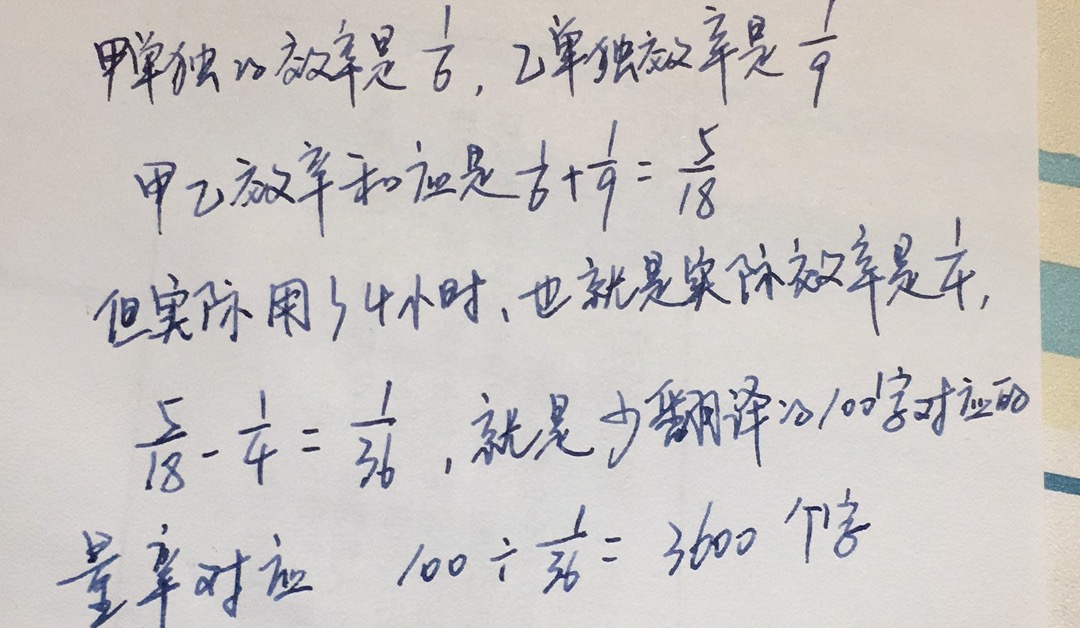 甲单独的效率是1/6,乙单独效率是1/9
甲乙效率和应是1/6+1/9=5/18
但实际用了4小时、也就是实际效率是1/4,
5/18-1/4=1/36,就是少翻译的100字对应的
量率对应 100÷1/36=3600个字